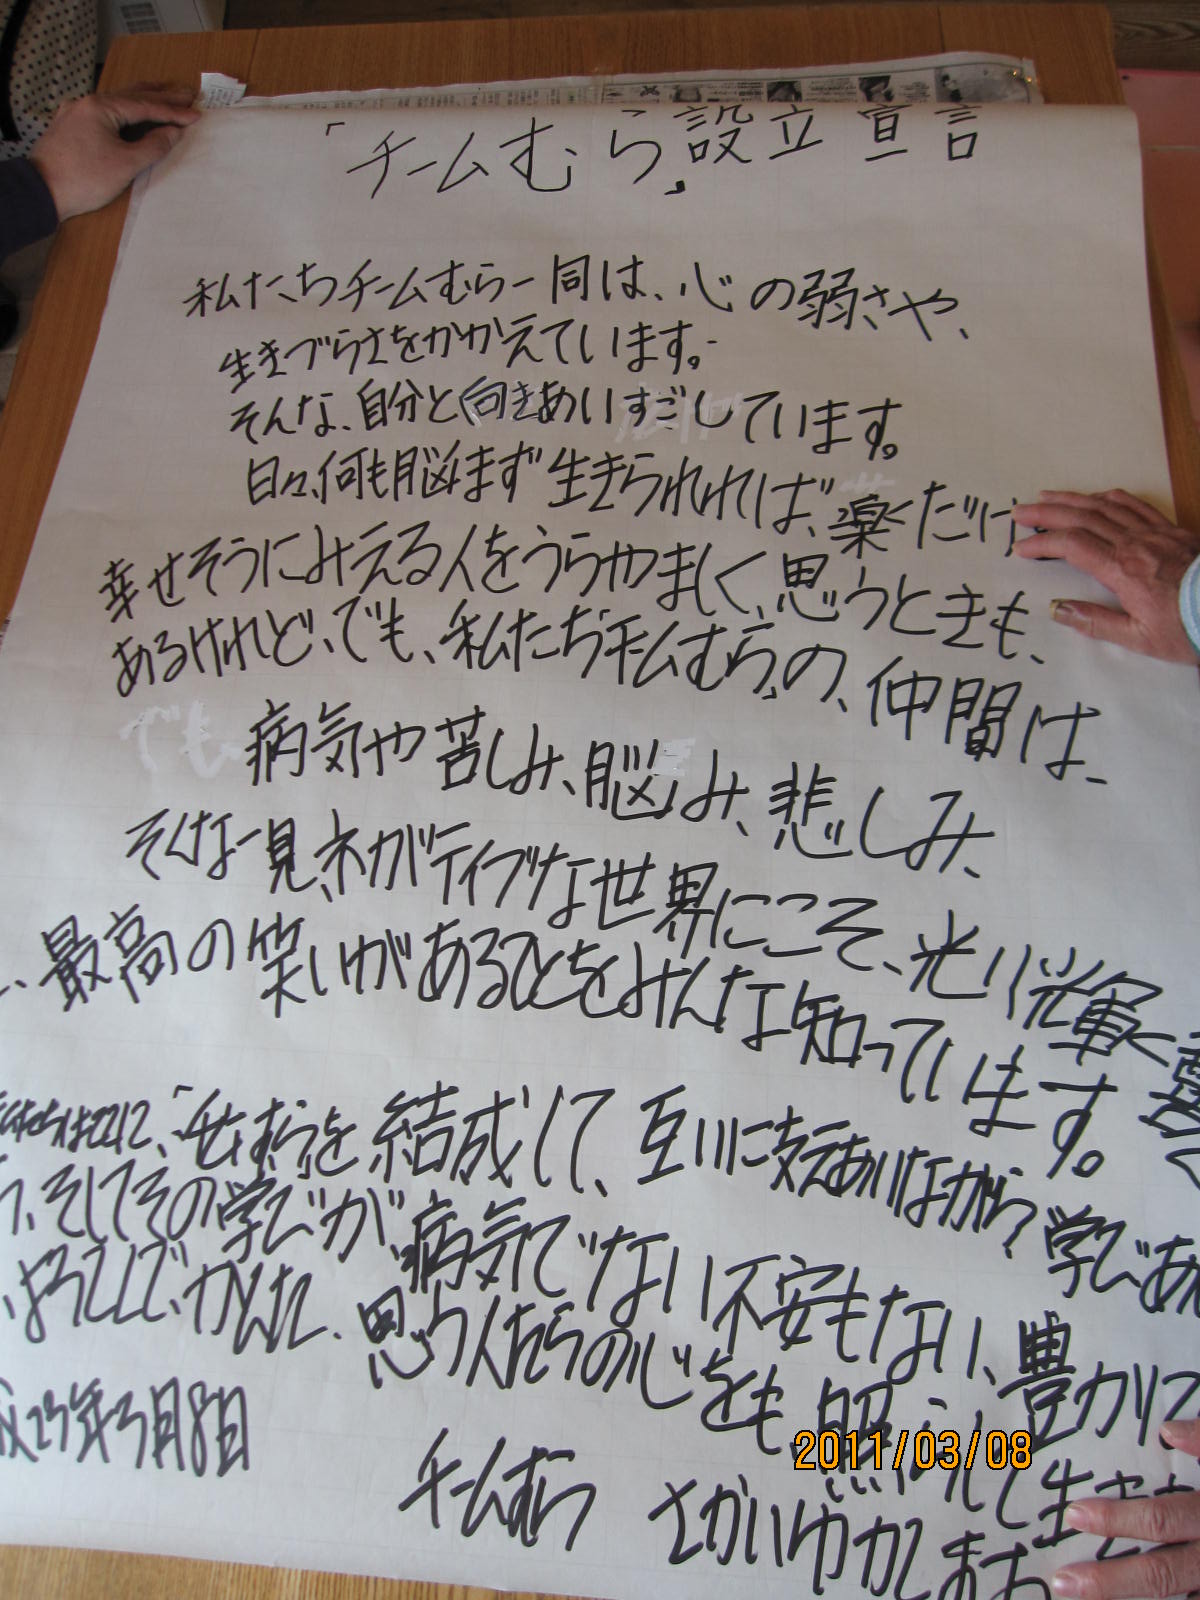 「チームむら」設立宣言
私たちチームむら一同は、心の弱さや、
生きづらさをかかえています。
そんな、自分と向きあいすごしています。
日々、何も脳まず生きられれば、楽くだけ
幸せそうにみえる人をうらやましく、思うときも、
あるけれど、でも、私たち「チームむら」の、仲間は、
でも、
病気や苦しみ、脳み、悲しみ、
そんな一見、ネガティブな世界にこそ、光り光輝く
、最高の笑いがあることをみんな知っています。
ここに、「チームむら」を結成して、互いに支えあいながら、学びあ
、そしてその学びが、病気でない不安もない、豊かに
思う人たちの心をも、照らして生き
23年3月8日
チームむら さかいゆかし
2011/03/08